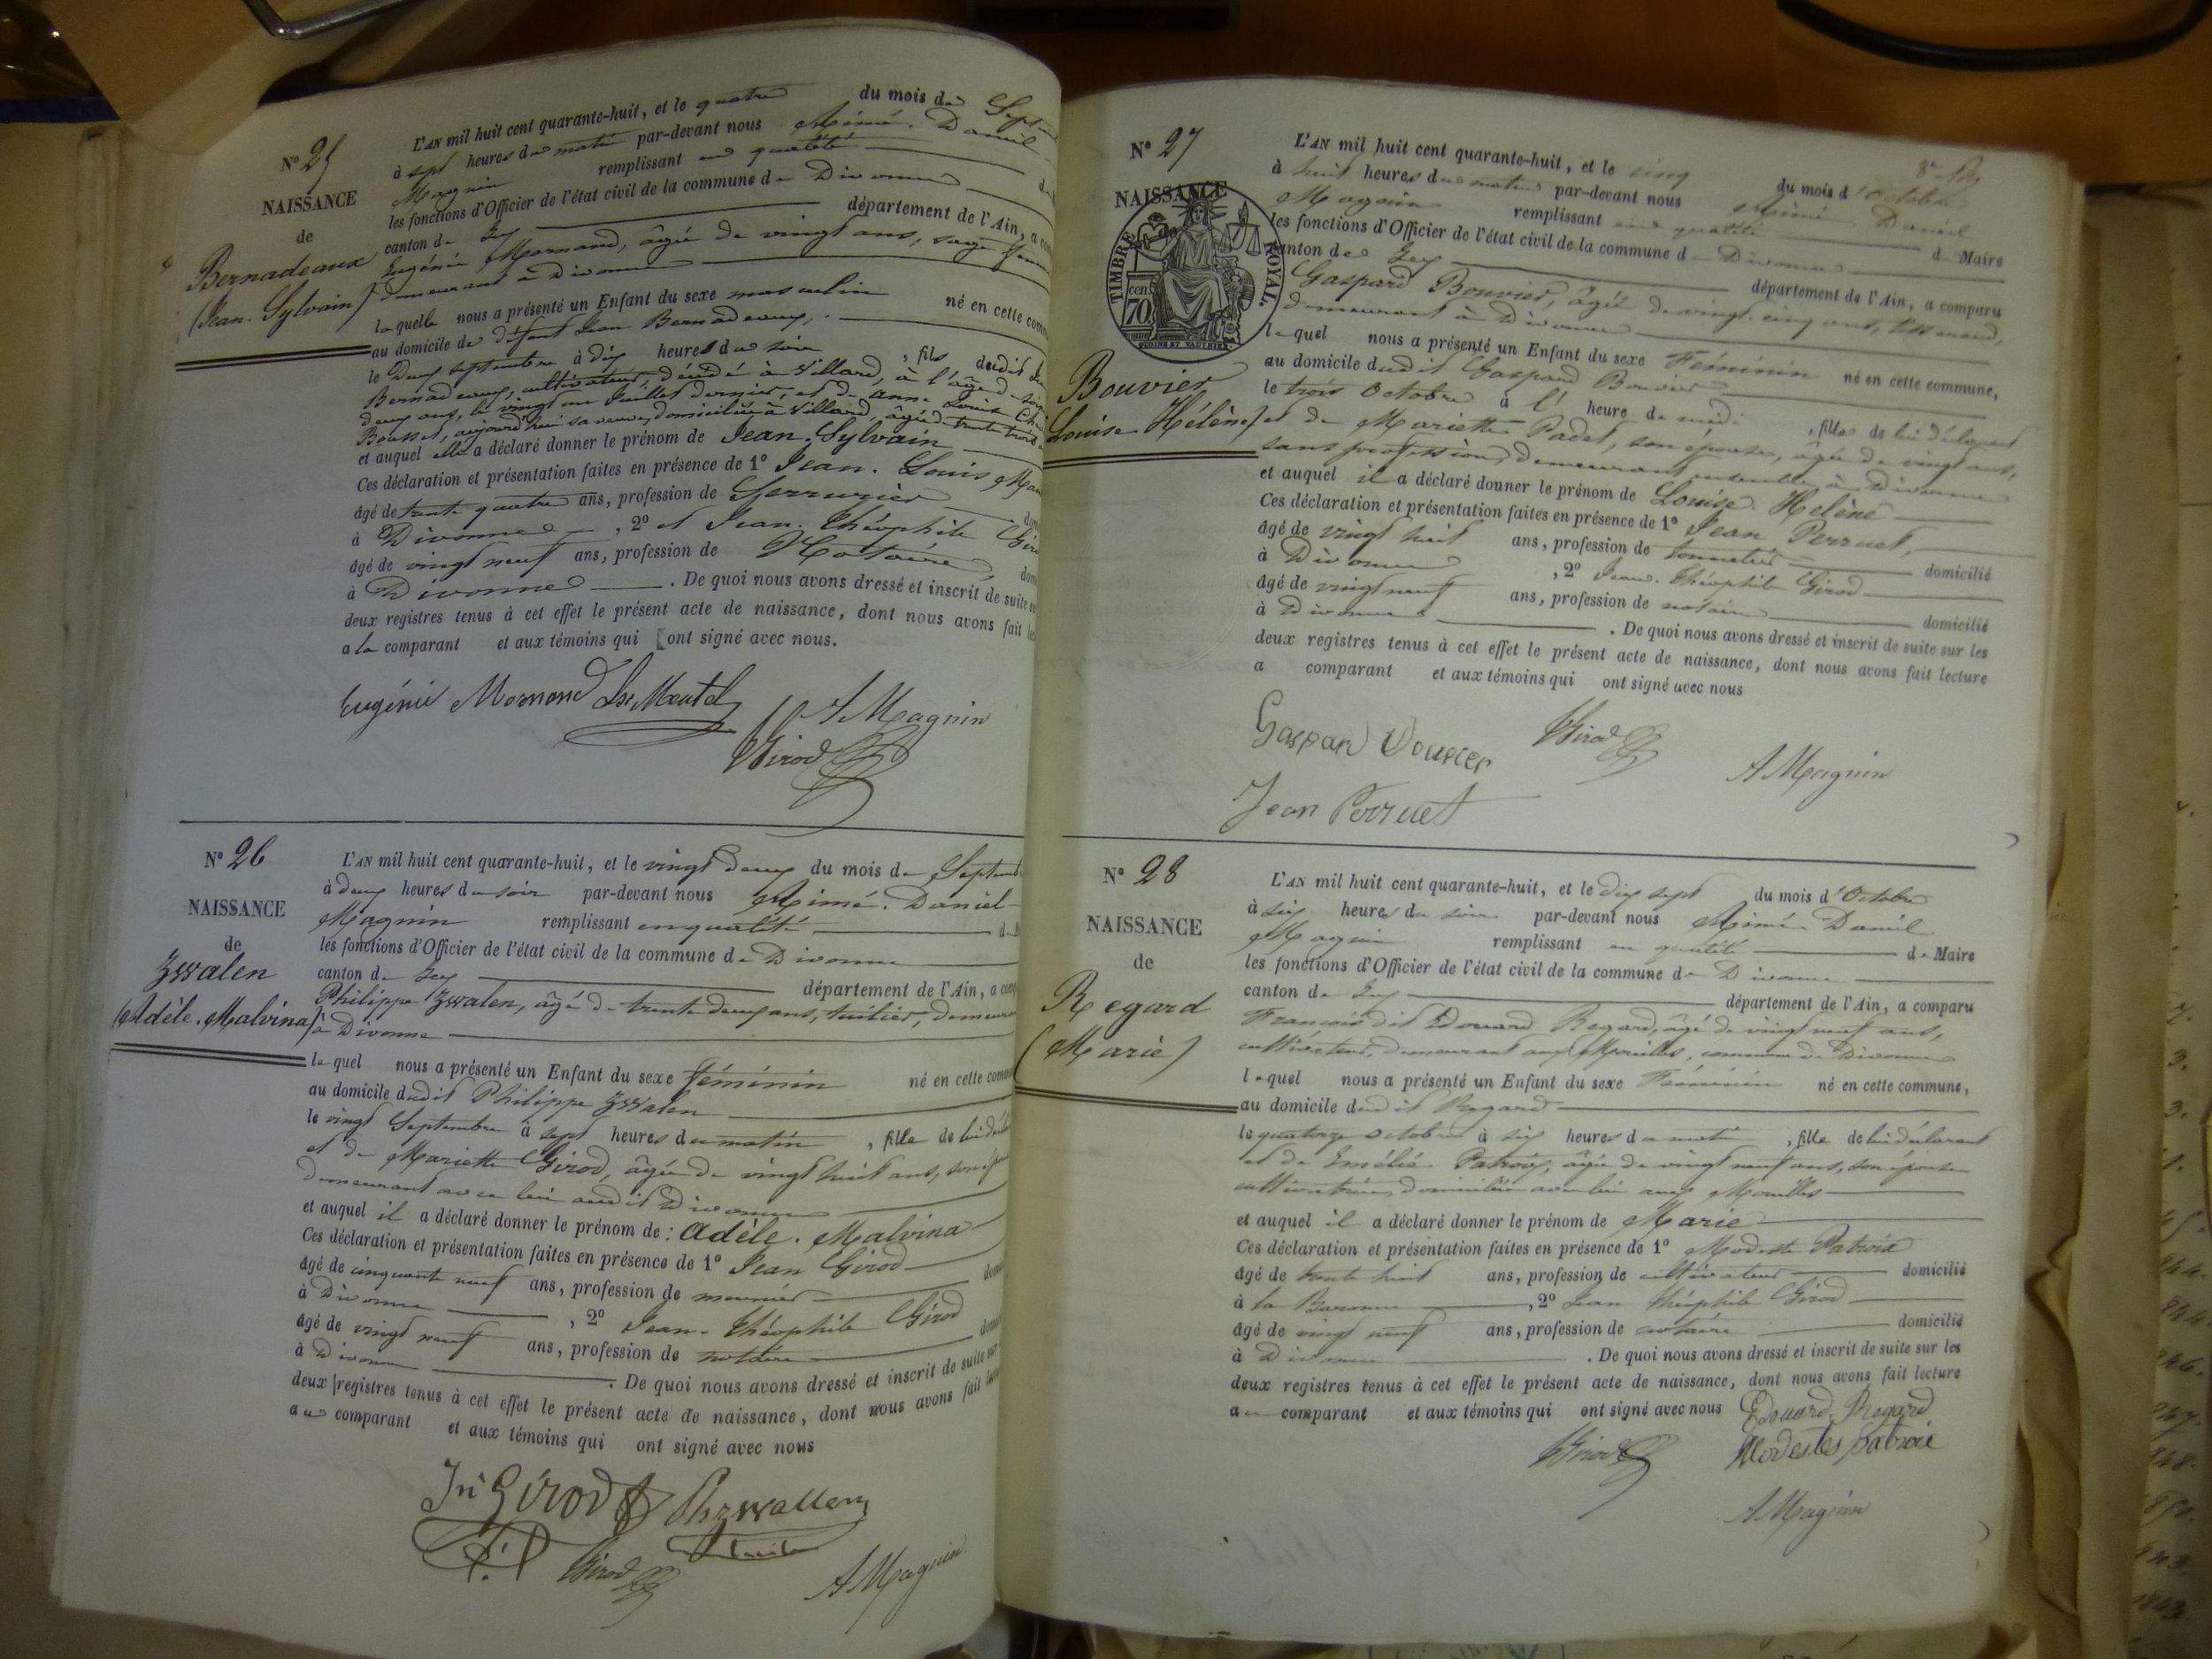 N° 25
NAISSANCE
de
Bernadeaux
(Jean. Sylvain)
L'AN mil huit cent quarante-huit, et le quatre du mois de
à sept heures du matin par-devant nous Aimé. Daniel
Magnin remplissant en qualité
les fonctions d'Officier de l'état civil de la commune de Divonne
canton de Gex département de l'Ain, a
Eugénie Mornand, âgée de vingt ans, sage
demeurant à Divonne
laquelle nous a présenté un Enfant du sexe masculin né en cette
au domicile de défunt Jean Bernadeaux,
le Deux septembre à dix heures du soir, fils dudit
Bernadeaux, cultivateur, décédé à Villard, à l'âge de
deux ans, le vingt un Juillet dernier, et de anne Louise
aujourd'hui sa veuve, domiciliée à Villard, âgée de trente trois
et auquel elle a déclaré donner le prénom de Jean. Sylvain
Ces déclaration et présentation faites en présence de 1° Jean. Louis
âgé de trente quatre ans, profession de Serrurier
à Divonne, 2° et Jean. Théophile
âgé de vingt neuf ans, profession de Notaire,
à Divonne. De quoi nous avons dressé et inscrit de suite
deux registres tenus à cet effet le présent acte de naissance, dont nous avons fait
a la comparant et aux témoins qui ont signé avec nous.
Eugénie Mornand A Magnin
Girod
N° 26
NAISSANCE
de
Zwalen
(Adèle. Malvina)
L'AN mil huit cent quarante-huit, et le vingt deux du mois de
à deux heures du soir par-devant nous Aimé. Daniel
Magnin remplissant en qualité
les fonctions d'Officier de l'état civil de la commune de Divonne
canton de Gex département de l'Ain, a
Philippe Zwalen, âgé de trente deux ans, tuilier,
à Divonne
lequel nous a présenté un Enfant du sexe féminin né en cette
au domicile dudit Philippe Zwalen
le vingt Septembre à sept heures du matin, fille de lui
et de Mariette Girod, âgée de vingt huit ans,
demeurant avec lui audit Divonne
et auquel il a déclaré donner le prénom de : Adèle. Malvina
Ces déclaration et présentation faites en présence de 1° Jean Girod
âgé de cinquante neuf ans, profession de meunier
à Divonne, 2° Jean. Théophile Girod
âgé de vingt neuf ans, profession de notaire
à Divonne. De quoi nous avons dressé et inscrit de suite sur
deux registres tenus à cet effet le présent acte de naissance, dont nous avons fait
a au comparant et aux témoins qui ont signé avec nous
Jn Girod Ph zwallen
Girod A Magnin
N° 27
NAISSANCE
TIMBRE ROYAL.
70
Bouvier
Louise. Hélène)
L'AN mil huit cent quarante-huit, et le cinq du mois d'Octobre
à huit heures du matin par-devant nous Aimé Daniel
Magnin remplissant en qualité de Maire
les fonctions d'Officier de l'état civil de la commune de Divonne
canton de Gex département de l'Ain, a comparu
Gaspard Bouvier, âgé de vingt cinq ans, tisserand,
demeurant à Divonne
lequel nous a présenté un Enfant du sexe Féminin né en cette commune,
au domicile dudit Gaspard Bouvier
le trois Octobre à l' heure de midi, fille de lui déclarant
et de Mariette Padel, son épouse, âgée de vingt ans,
sans profession, demeurant ensemble à Divonne
et auquel il a déclaré donner le prénom de Louise. Helène
Ces déclaration et présentation faites en présence de 1° Jean Perruet,
âgé de vingt huit ans, profession de tonnelier domicilié
à Divonne, 2° Jean. Théophile Girod
âgé de vingt neuf ans, profession de notaire domicilié
à Divonne. De quoi nous avons dressé et inscrit de suite sur les
deux registres tenus à cet effet le présent acte de naissance, dont nous avons fait lecture
a comparant et aux témoins qui ont signé avec nous
Gaspard Bouvier Girod A Magnin
Jean Perruet
N° 28
NAISSANCE
de
Regard
(Marie)
L'AN mil huit cent quarante-huit, et le dix sept du mois d'Octobre
à six heures du soir par-devant nous Aimé Daniel
Magnin remplissant en qualité de Maire
les fonctions d'Officier de l'état civil de la commune de Divonne
canton de Gex département de l'Ain, a comparu
François dit Edouard Regard, âgé de vingt neuf ans,
cultivateur, demeurant aux Mouilles, commune de Divonne
lequel nous a présenté un Enfant du sexe Féminin né en cette commune,
au domicile dudit Regard
le quatorze octobre à six heures du matin, fille de lui déclarant
et de Emélie Patroix, âgée de vingt neuf ans, son épouse
cultivatrice, domiciliée avec lui aux Mouilles
et auquel il a déclaré donner le prénom de Marie
Ces déclaration et présentation faites en présence de 1° Modeste Patroix
âgé de trente huit ans, profession de cultivateur domicilié
à la, 2° Jean Théophile Girod
âgé de vingt neuf ans, profession de notaire domicilié
à Divonne. De quoi nous avons dressé et inscrit de suite sur les
deux registres tenus à cet effet le présent acte de naissance, dont nous avons fait lecture
a au comparant et aux témoins qui ont signé avec nous Edouard Regard
Girod Modestes patroie
A Magnin